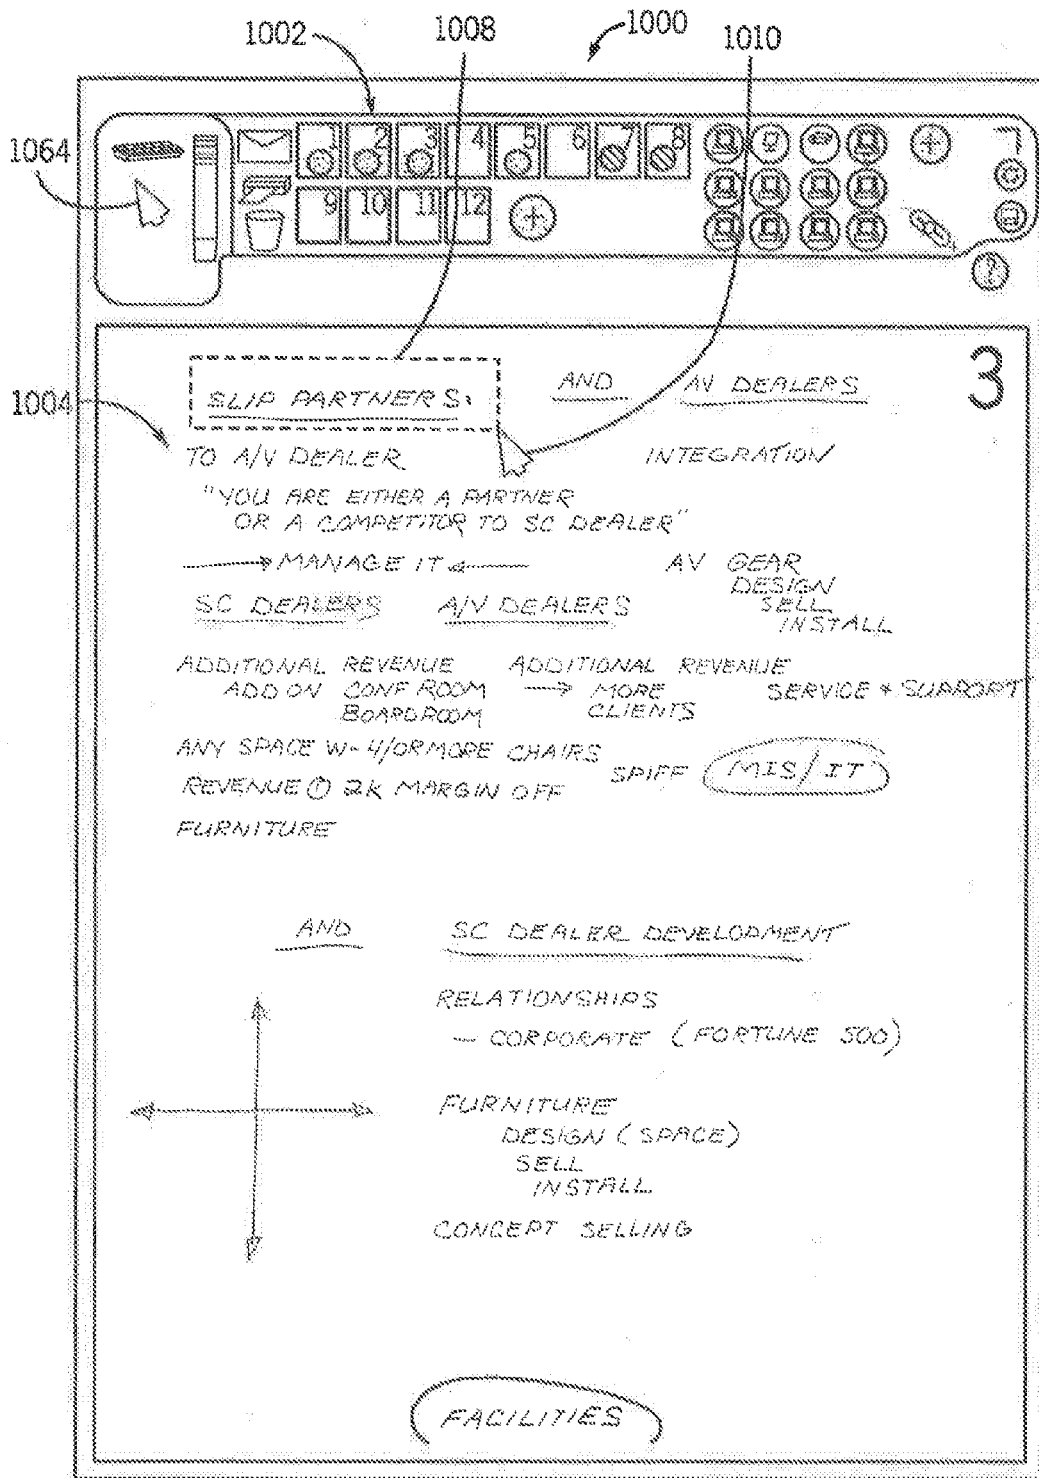 1002
1008
1000
1010
1064
1 2 3 4 5 6 7 8
9 10 11 12
?
3
1004
SLIP PARTNERS: AND AV DEALERS
TO A/V DEALER INTEGRATION
"YOU ARE EITHER A PARTNER
OR A COMPETITOR TO SC DEALER"
MANAGE IT AV GEAR
DESIGN
SELL
INSTALL
SC DEALERS A/V DEALERS
ADDITIONAL REVENUE ADDITIONAL REVENUE
ADD ON CONF ROOM → MORE SERVICE + SUPPORT
BOARDROOM CLIENTS
ANY SPACE W-4/OR MORE CHAIRS
SPIFF MIS/IT
REVENUE ① 2K MARGIN OFF
FURNITURE
AND SC DEALER DEVELOPMENT
RELATIONSHIPS
— CORPORATE (FORTUNE 500)
FURNITURE
DESIGN (SPACE)
SELL
INSTALL
CONCEPT SELLING
FACILITIES